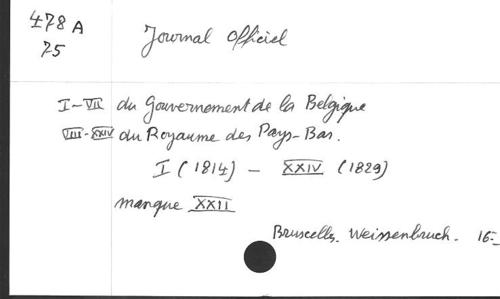 478 A
75
Journal Officiel
I-VII du Gouvernement de la Belgique
VIII-XXIV du Royaume des Pays-Bas.
I (1814) - XXIV (1829)
manque XXII
Bruxelles. Weissenbruch. 16-